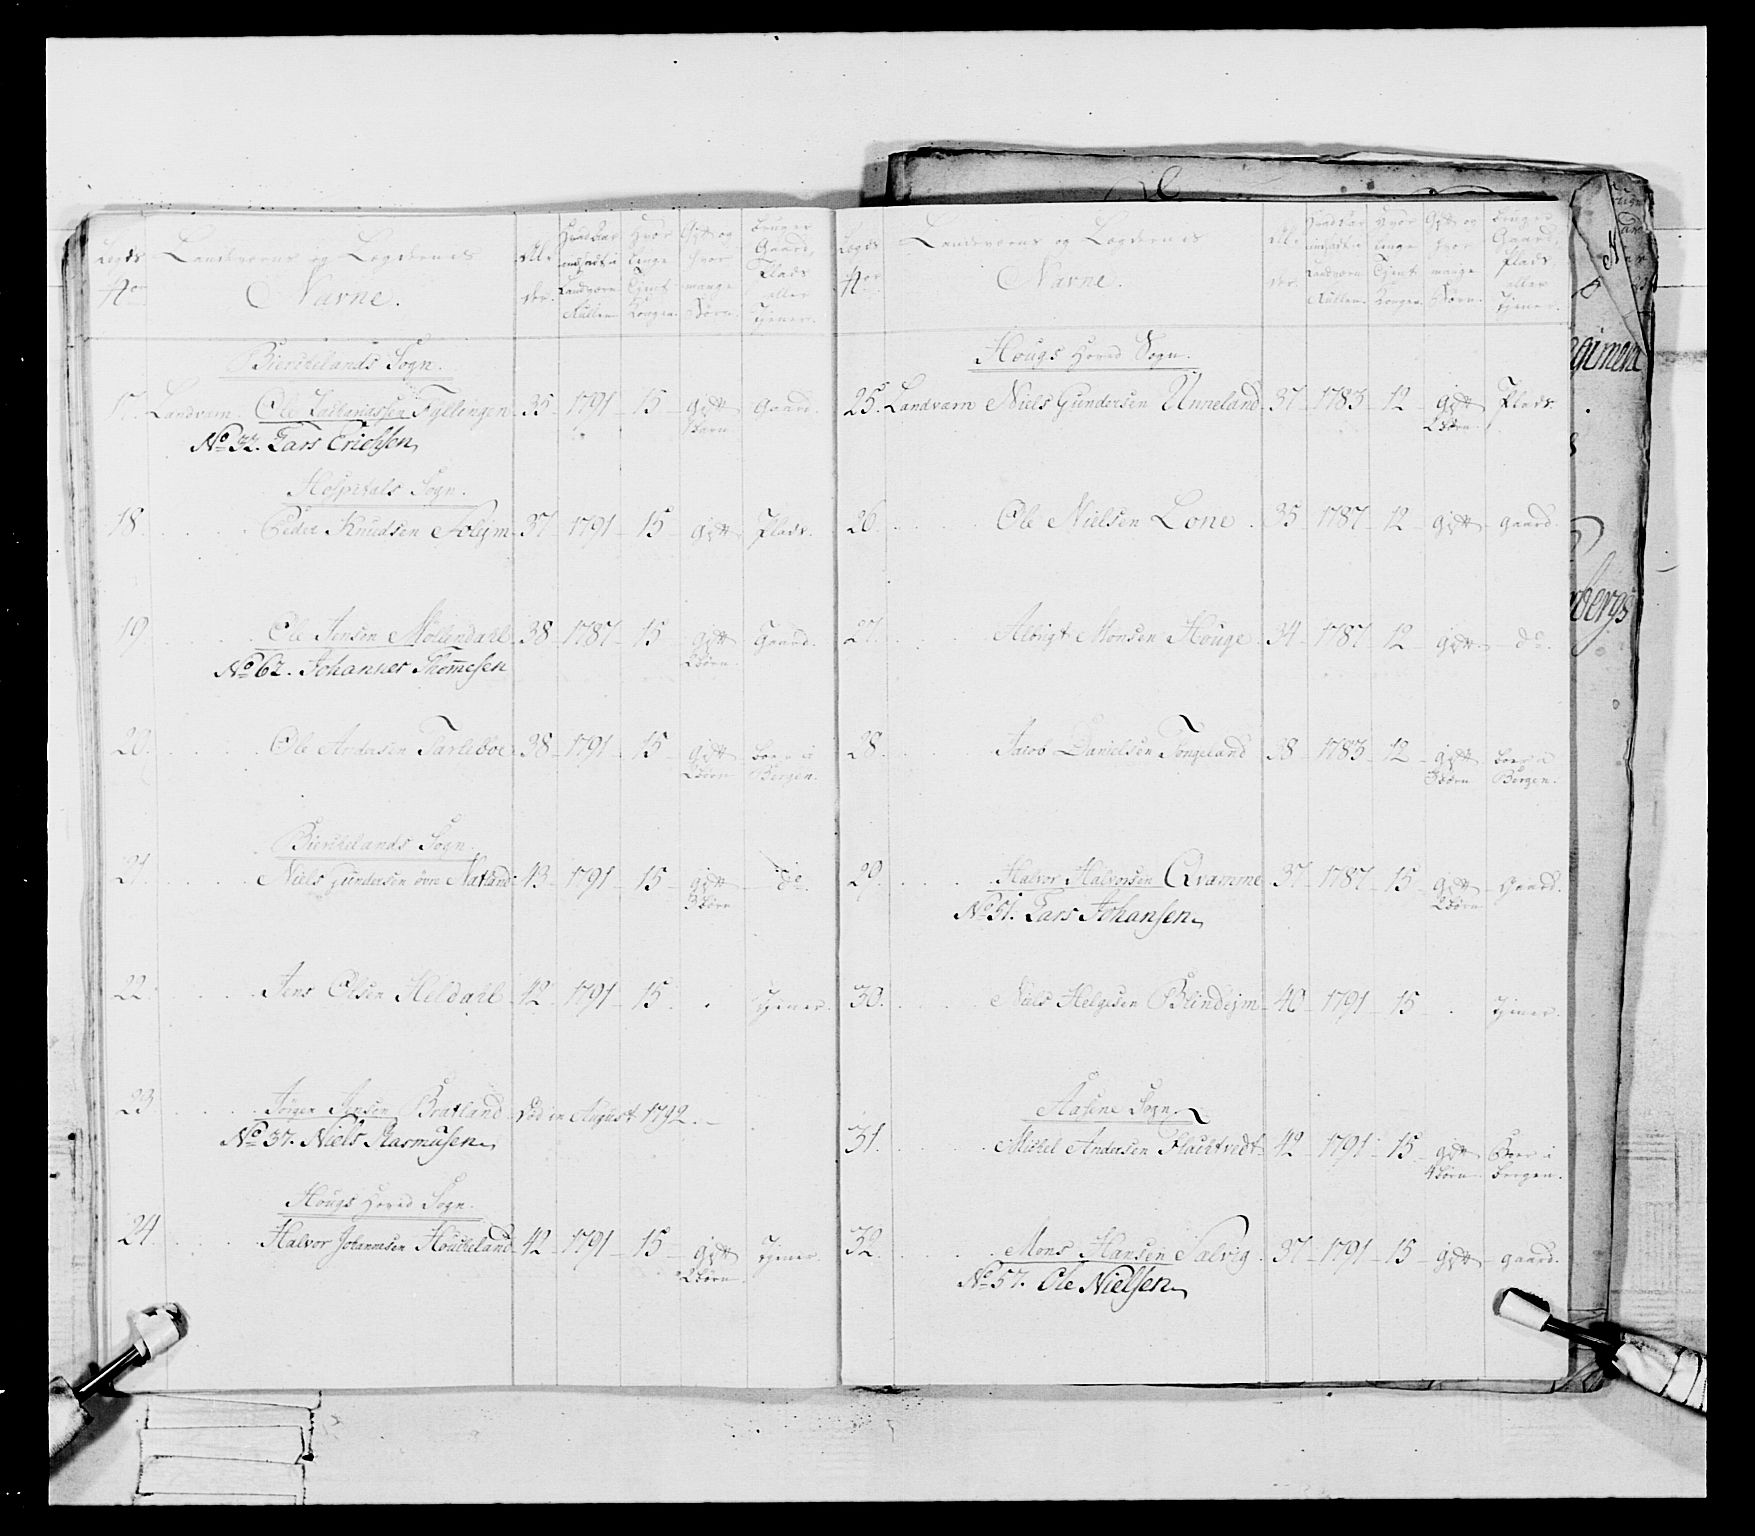 Lægds No. Landeværns og Lægdernes Navne. Alder. Hvad Aar indsadt i Landværn Rullen. Hvor længe Tjent Kongen. Gift og hvor mange Børn. bruger Gaard, Plads eller tjener.
Bierchelands Sogn.
17. Landværn. Ole Zachariassen Fyllingen 35 - 1791 - 15 - gift 1 barn gaard
No 32. Lars Erichsen
Hospitals Sogn.
18. Peder Knudsen Solejm 37 - 1791 - 15 - gift Plads.
19 Ole Jensen Møllendahl 38 - 1787 - 15 - gift 2 børn Gaard.
No 62. Johannes Thomesen
20. Ole Andersen Tarleboe 38 - 1791 - 15 - gift 2 børn boer i Bergen.
Bierchelands Sogn
21. Niels Gundersen øvre Natland 43 - 1791 - 15 - gift 3 børn do
22. Jens Olsen Heldahl 42 - 1791 - 15 - tjener.
23 Jørgen Jensen Bratland Død in August 1792.
No 37. Niels Rasmusen
Hougs Hoved Sogn.
24. Halvor Johannesen Houcheland 42 - 1791 - 15 - gift 2 børn tjener.
Lægds No. Landeværns og Lægdernes Navne. Alder. Hvad Aar indsadt i Landværn Rullen. Hvor længe Tjent Kongen. Gift og hvor mange Børn. bruger Gaard, Plads eller tjener.
Hougs Hoved Sogn.
25. Landværn Niels Gundersen Unneland 37 - 1783 - 12 - gift 2 børn Plads.
26. Ole Nielsen Lone 35 - 1787 - 12 - gift - gaard.
27. Albrigt Monsen Houge 34 - 1787 - 12 - gift - do.
28. Jacob Danielsen Tongeland 38 - 1783 - 12 - gift 3 børn boer i Bergen.
29. Halvor Halvorsen Qvamme 37 - 1787 - 15 - gift 2 børn - Gaard.
No 51. Lars Johansen
30. Niels Helgesen Blindejm 40 - 1791 - 15 - tjener.
Aasene Sogn.
31. Michel Andersen Flachtvedt 42 - 1791 - 15 - gift 4 børn Boer i bergen.
32. Mons Hansen Salvig 37 - 1791 - 15 - gift - gaard.
No 57. Ole Nielsen